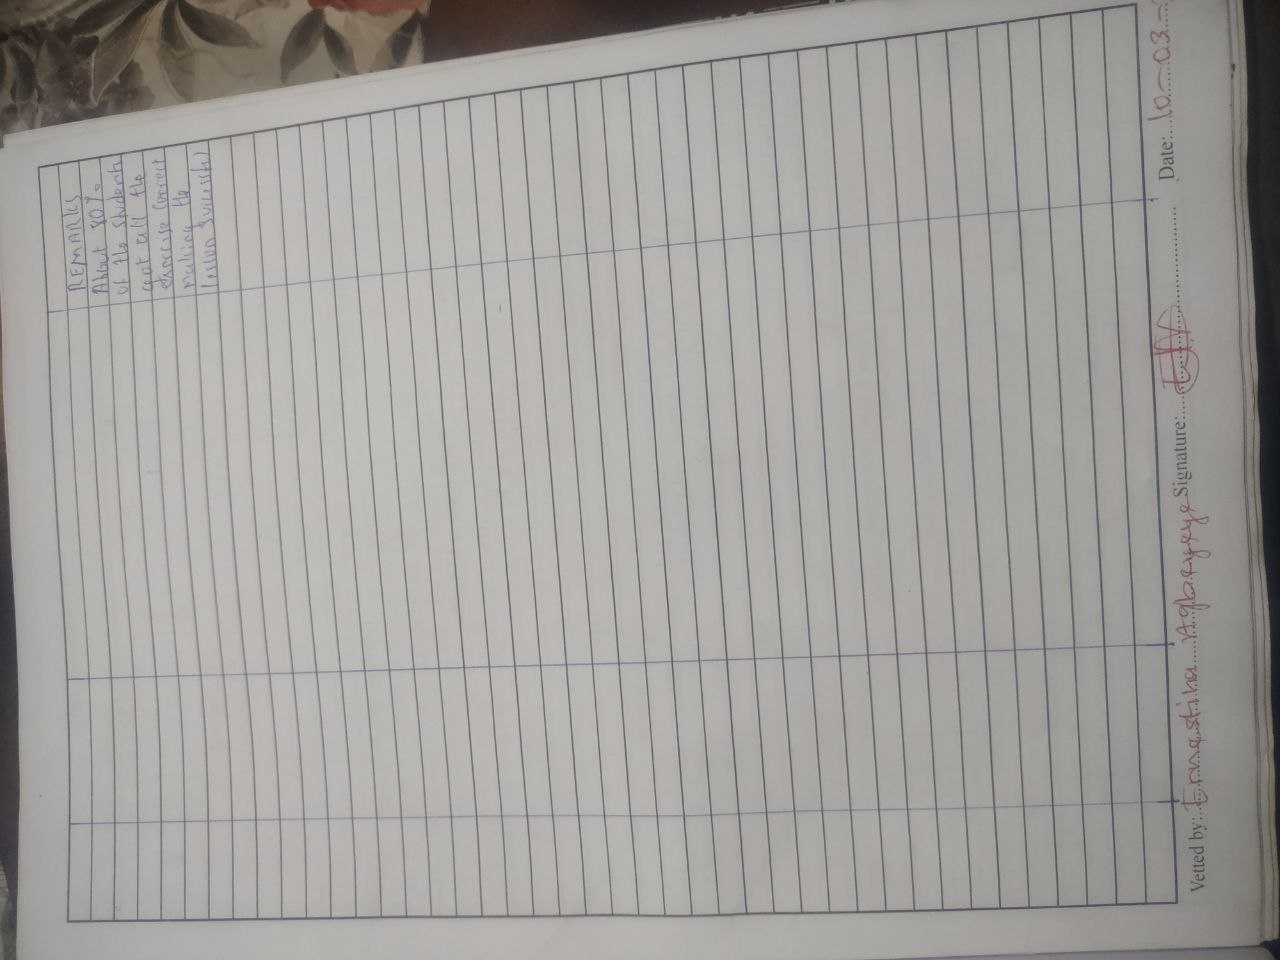 REMARKS
About 80%
of the students
got all the
exercise correct
making the
lesson successful
Vetted by: Ernestina Agbeyeye Signature: Date: 10-03-